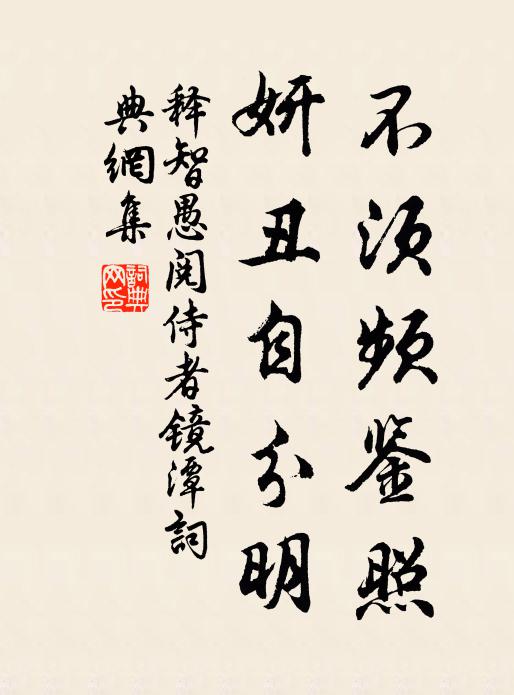 不须频鉴照
妍丑自分明
释智愚阅侍者镜潭詞
典網集
詞典網印